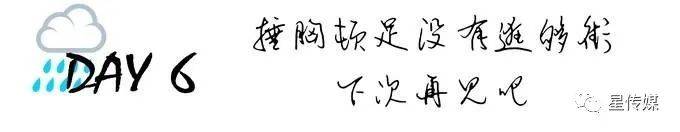 DAY 6
捶胸顿足没有逛够街
下次再见吧
星传媒